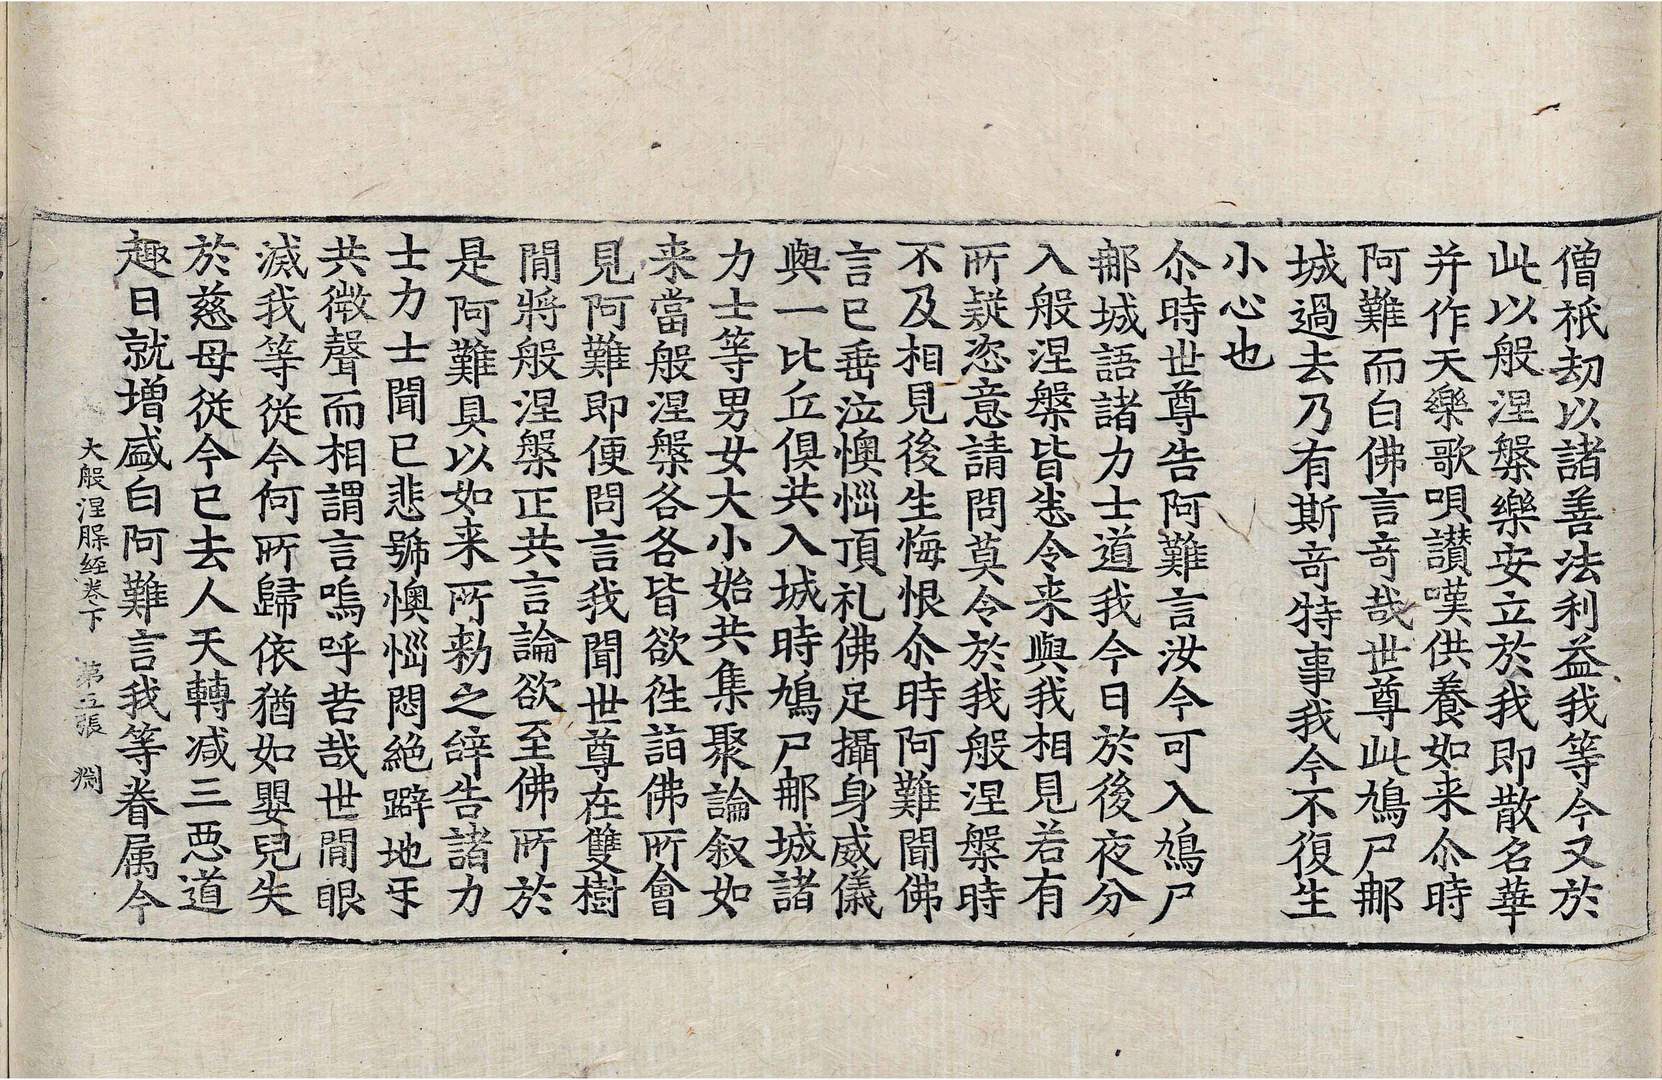 僧祇劫以諸善法利益我等今又於
此以般涅槃樂安立於我即散名華
并作天樂歌唄讃嘆供養如来尒時
阿難而白佛言竒哉世尊此鳩尸𨙻
城過去乃有斯竒特事我今不復生
小心也
尒時世尊告阿難言汝今可入鳩尸
𨙻城語諸力士道我今日於後夜分
入般涅槃皆悉令来與我相見若有
所疑恣意請問莫令於我般涅槃時
不及相見後生悔恨尒時阿難聞佛
言已垂泣懊惱頂礼佛足攝身威儀
與一比丘俱共入城時鳩尸𨙻城諸
力士等男女大小始共集聚論叙如
来當般涅槃各各皆欲徃詣佛所會
見阿難即便問言我聞世尊在雙樹
間將般涅槃正共言論欲至佛所於
是阿難具以如来所勑之辝告諸力
士力士聞已悲號懊惱悶絶躃地㸦
共微聲而相謂言嗚呼苦哉世間眼
滅我等従今何所歸依猶如嬰兒失
於慈母従今已去人天轉减三悪道
趣日就增盛白阿難言我等眷属今
大般涅槃經卷下 第五張 淵